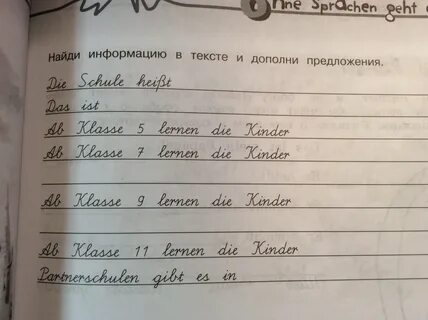 Ohne Sprachen geht
Найди информацию в тексте и дополни предложения.
Die Schule heißt
Das ist
Ab Klasse 5 lernen die Kinder
Ab Klasse 7 lernen die Kinder
Ab Klasse 9 lernen die Kinder
Ab Klasse 11 lernen die Kinder
Partnerschulen gibt es in